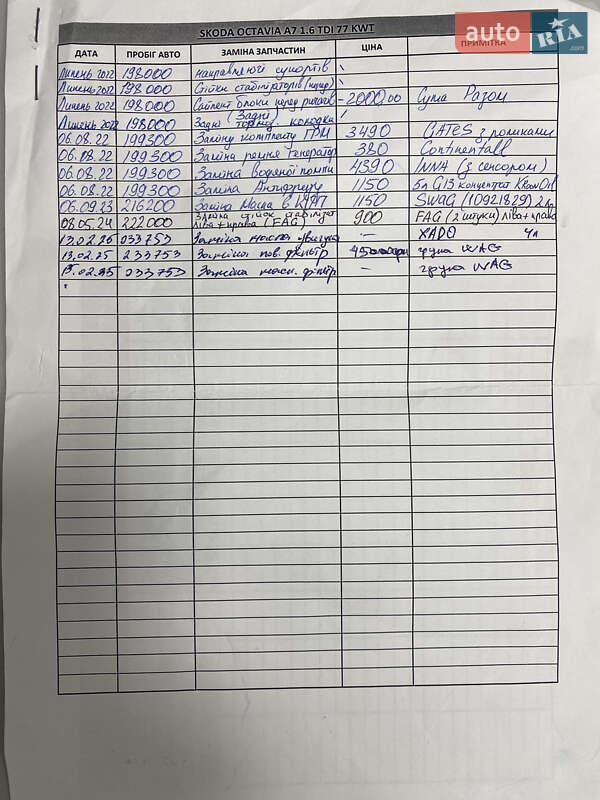 auto RIA.com
SKODA OCTAVIA A7 1.6 TDI 77 KWT
ДАТА ПРОБІГ АВТО ЗАМІНА ЗАПЧАСТИН ЦІНА ПРИМІТКА
Липень 2022 198000 направляючі супортів
Липень 2022 198000 Стійки стабілізаторів (перед)
Липень 2022 198000 Сайлент блоки перед 2000,00 Сума Разом
Липень 2022 198000 Задні (Задні) колодки
06.08.22 199300 Заміна комплекту ГРМ 3490 GATES з роликами
06.08.22 199300 Заміна ременя генератор 380 Continentall
06.08.22 199300 Заміна водяної помпи 4390 INNA (з сенсором)
06.08.22 199300 Заміна Антифризу 1150 5л G13 концентрат
06.09.23 216200 Заміна Масла в КПП 1150 SWAG (10921829) 2 л
08.05.24 222000 Заміна стійок стабілізат ліва+права (FAG) 900 FAG (2 штуки) ліва+права
13.02.25 233753 Заміна масла двигуна — XADO 4л
13.02.25 233753 Заміна пов. фільтр група WAG
13.02.25 233753 Заміна масл. фільтр — група WAG